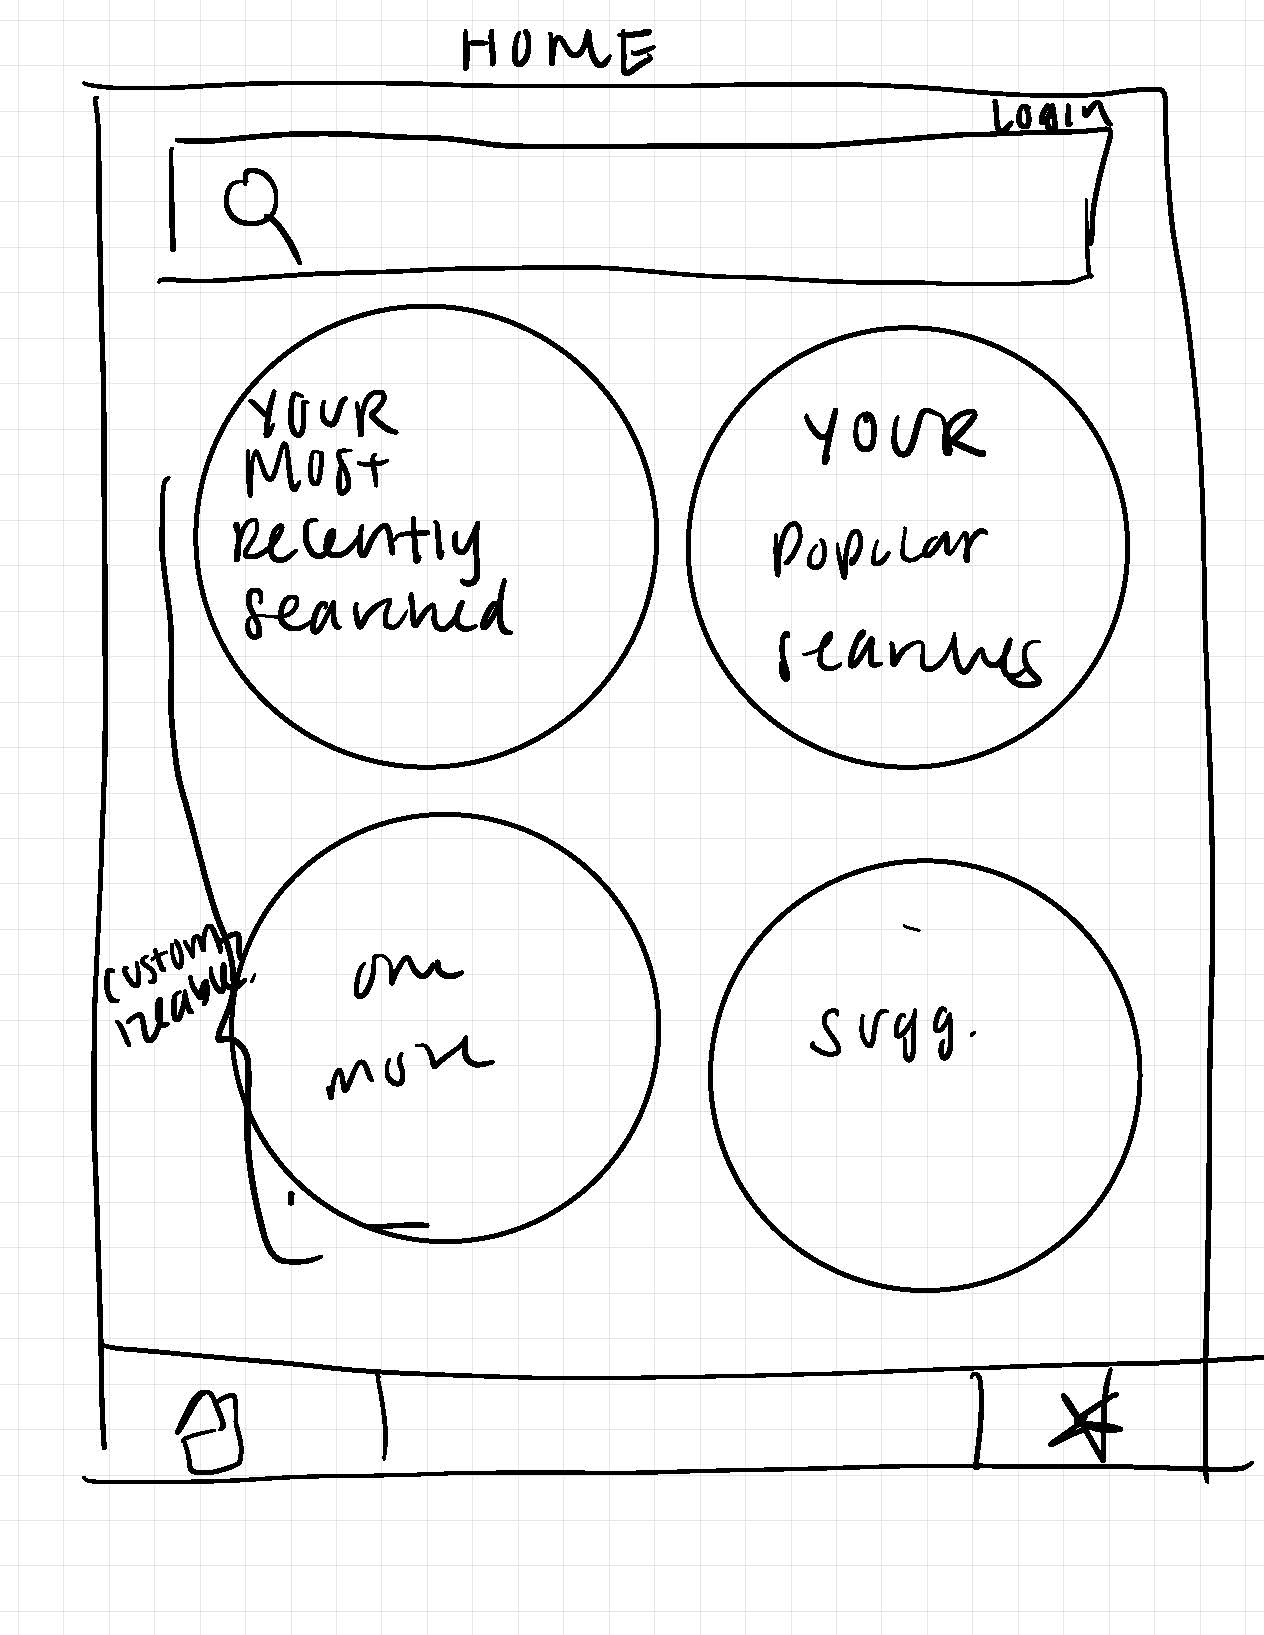 HOME
LOGIN
YOUR
MOST
Recently
Searched
YOUR
Popular
searches
custom
izeable.
one
more
sugg.